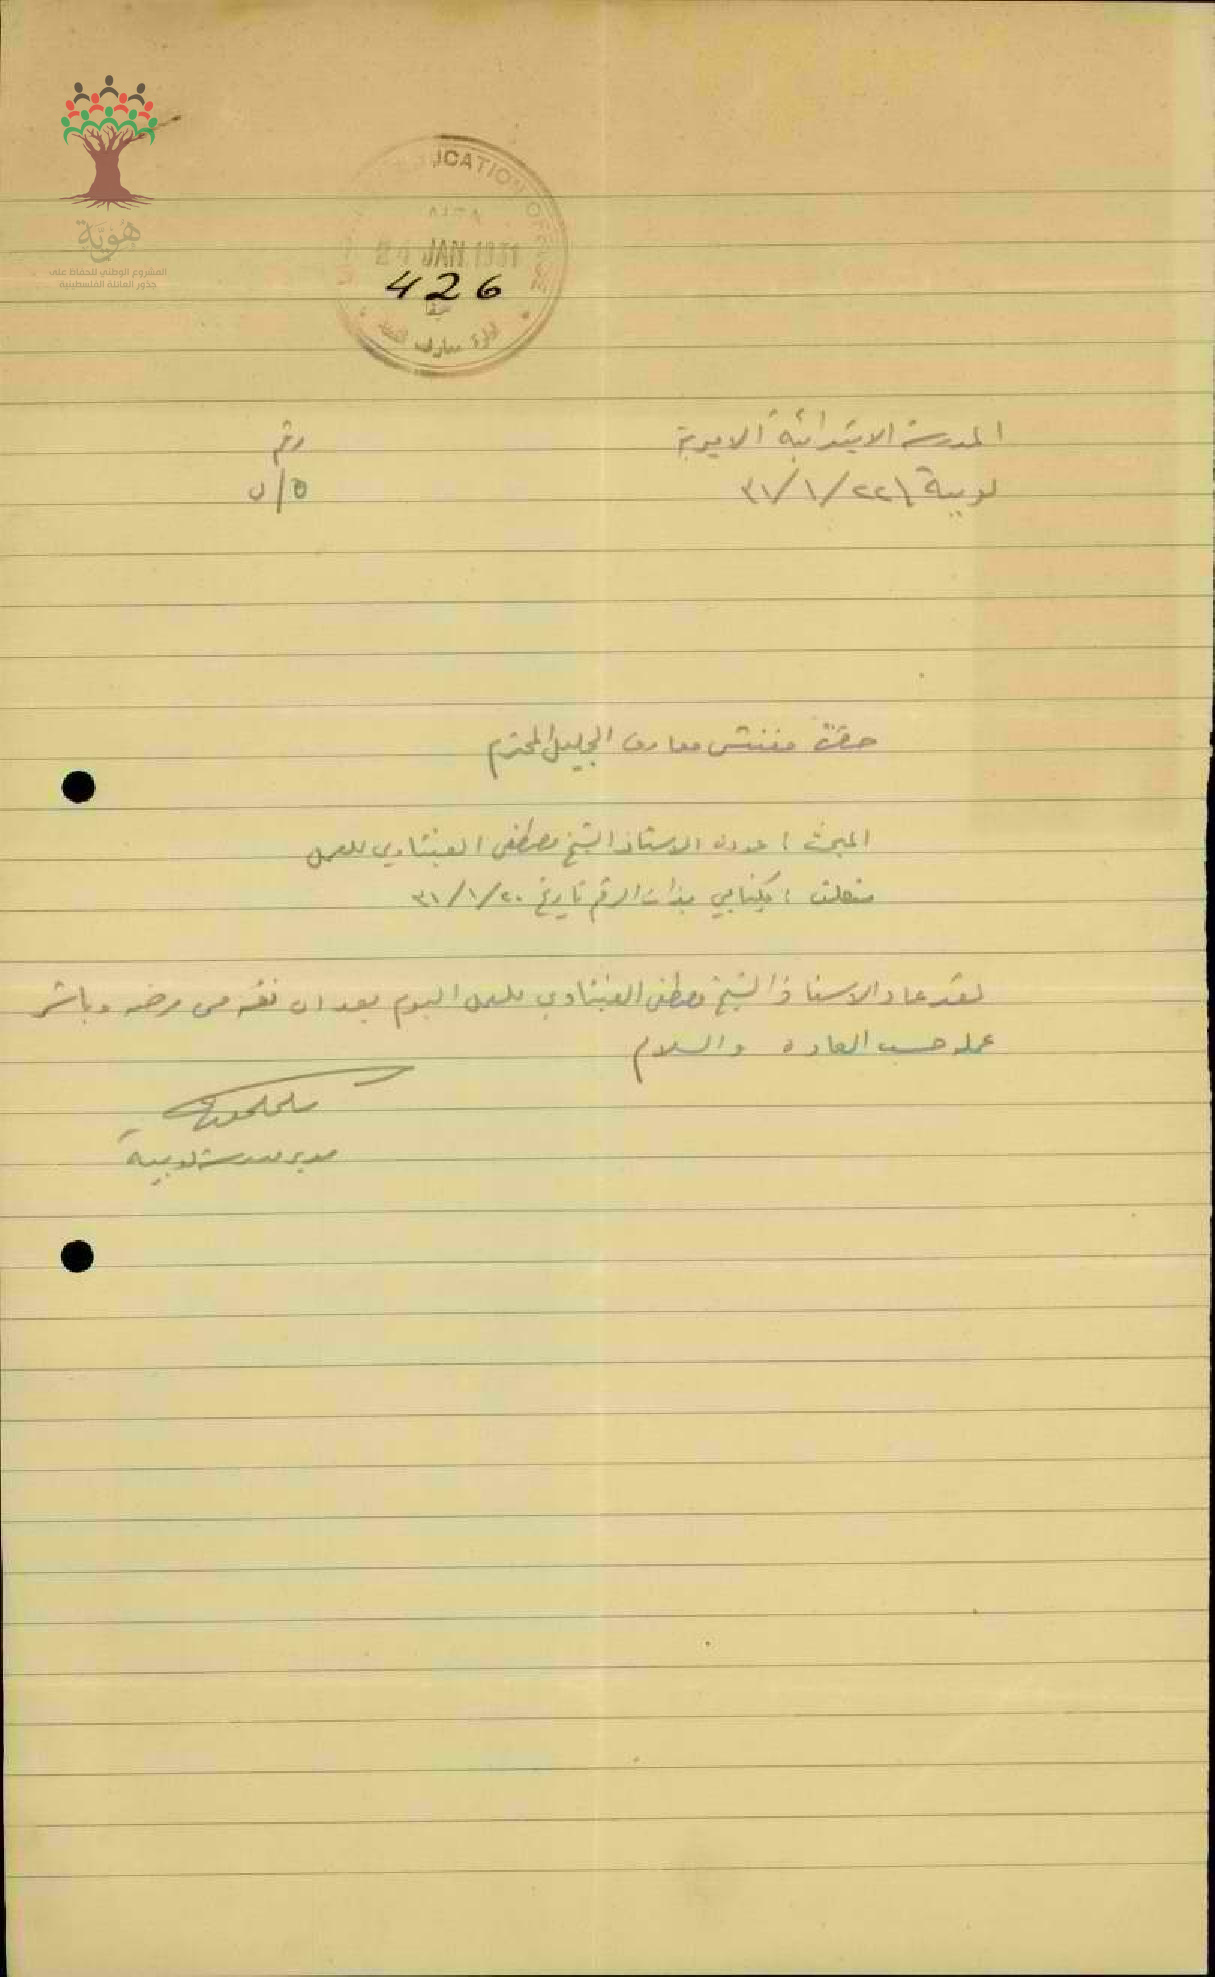 هوية
المشروع الوطني للحفاظ على
جذور العائلة الفلسطينية
EDUCATION OFFICE
JAN 1931
426
حيفا
ادارة معارف
المدرسة الابتدائية الاميرية
رقم
لوبية ٢٢/١/٣١
٥/ل
حضرة مفتش معارف الجليل المحترم
المبحث : عودة الاستاذ الشيخ مصطفى العينتاوي للعمل
متعلق : بكتابي بذات الرقم تاريخ ٢٠/١/٣١
لقد عاد الاستاذ الشيخ مصطفى العينتاوي للعمل اليوم بعد ان نقه من مرضه وباشر
عمله حسب العادة والسلام
مدير مدرسة لوبية